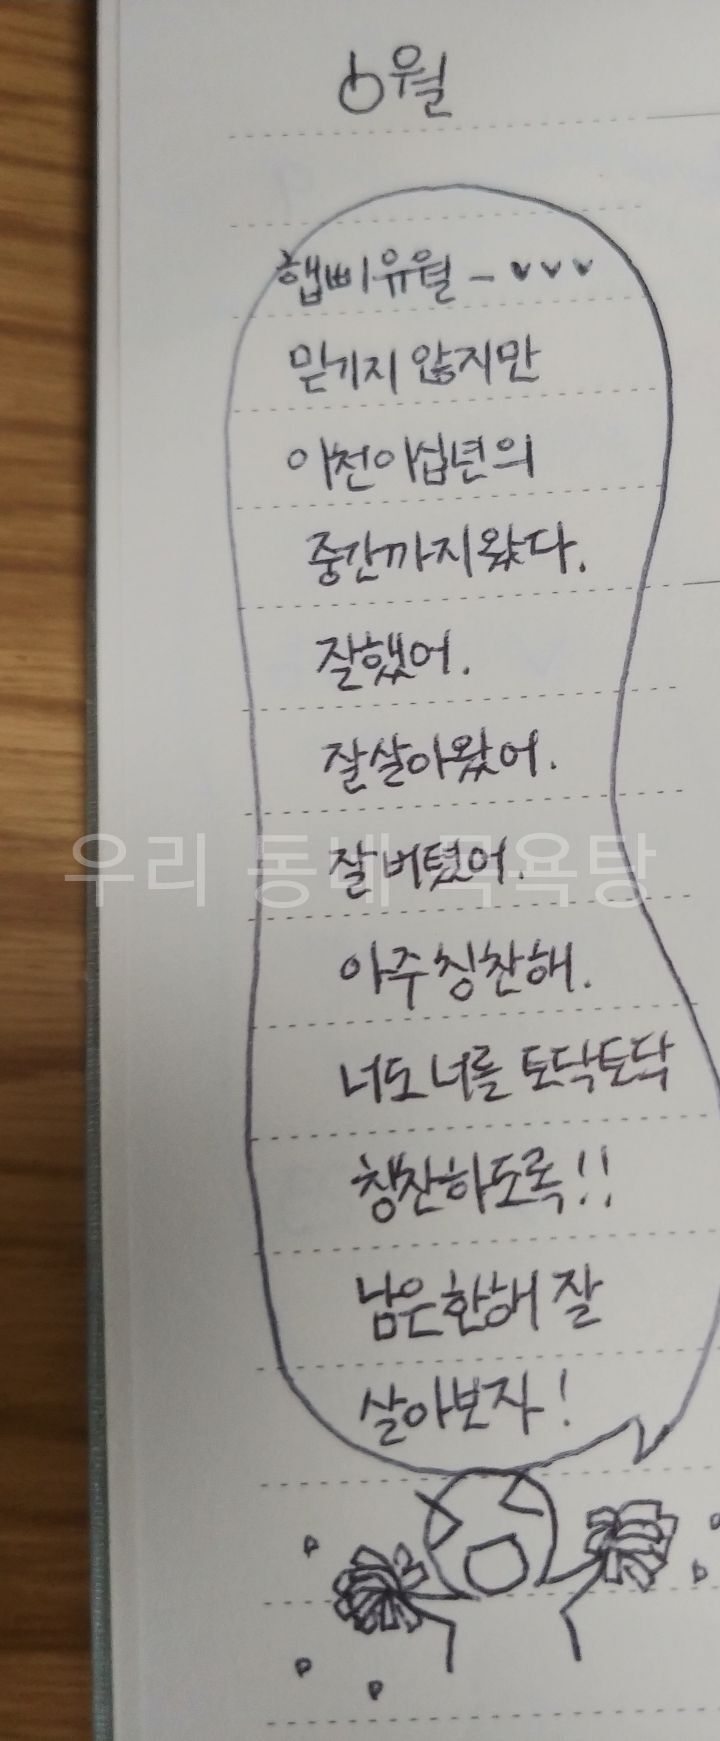 6월
햅삐유월 - ♥♥♥
믿기지 않지만
이천이십년의
중간까지왔다.
잘했어.
잘살아왔어.
잘버텼어.
우리 동네 목욕탕
아주칭찬해.
너도 너를 토닥토닥
칭찬하도록!!
남은한해 잘
살아보자!